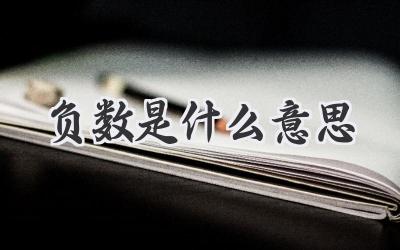 负数是什么意思